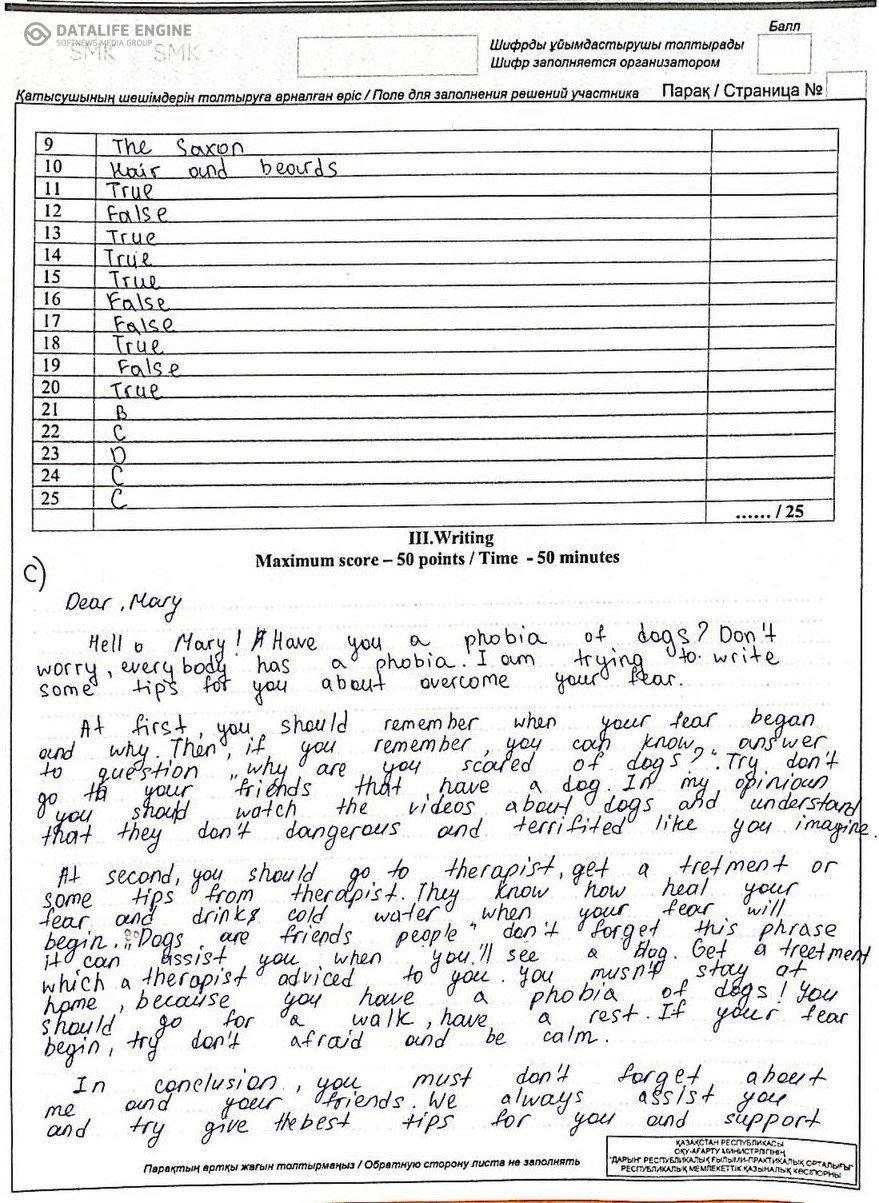 DATALIFE ENGINE
SOFTNEWS MEDIA GROUP
SMK SMK
Балл
Шифрды ұйымдастырушы толтырады
Шифр заполняется организатором
Қатысушының шешімдерін толтыруға арналған өріс / Поле для заполнения решений участника Парақ / Страница №
9 The Saxon
10 Hair and beards
11 True
12 False
13 True
14 True
15 True
16 False
17 False
18 True
19 False
20 True
21 B
22 C
23 D
24 C
25 C
...... / 25
III.Writing
Maximum score – 50 points / Time - 50 minutes
c)
Dear, Mary
Hello Mary! Have you a phobia of dogs? Don't
worry, everybody has a phobia. I am trying to write
some tips for you about overcome your fear.
At first, you should remember when your fear began
and why. Then, if you remember, you can know answer
to question „why are you scared of dogs?". Try don't
go to your friends that have a dog. In my opinion
you should watch the videos about dogs and understand
that they don't dangerous and terrifited like you imagine.
At second, you should go to therapist, get a tretment or
some tips from therapist. They know how heal your
fear and drinks cold water when your fear will
begin. „Dogs are friends people" don't forget this phrase
it can assist you when you'll see a dog. Get a treetment
which a therapist adviced to you. You musn't stay at
home, because you have a phobia of dogs! You
should go for a walk, have a rest. If your fear
begin, try don't afraid and be calm.
In conclusion, you must don't forget about
me and your friends. We always assist you
and try give the best tips for you and support
Парақтың артқы жағын толтырмаңыз / Обратную сторону листа не заполнять
ҚАЗАҚСТАН РЕСПУБЛИКАСЫ
ОҚУ-АҒАРТУ МИНИСТРЛІГІНІҢ
"ДАРЫН" РЕСПУБЛИКАЛЫҚ ҒЫЛЫМИ-ПРАКТИКАЛЫҚ ОРТАЛЫҒЫ"
РЕСПУБЛИКАЛЫҚ МЕМЛЕКЕТТІК ҚАЗЫНАЛЫҚ КӘСІПОРНЫ